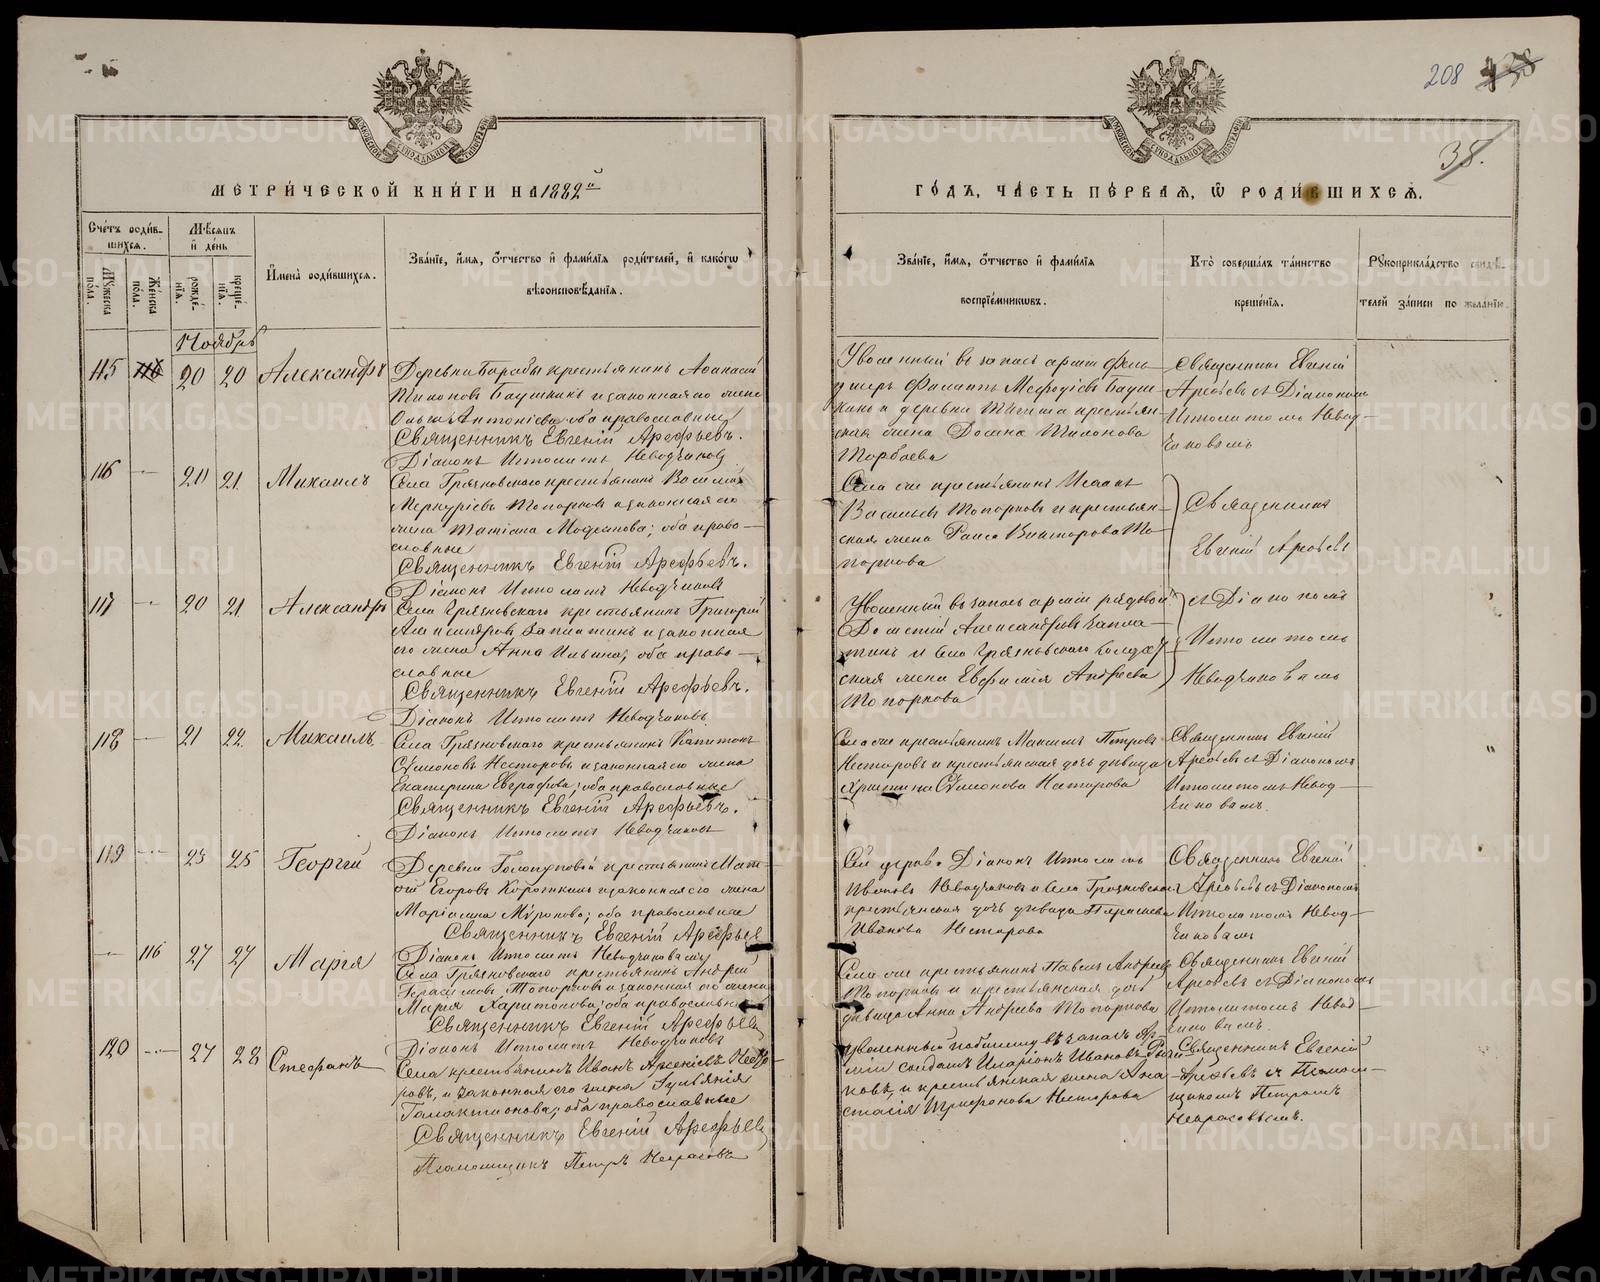 208
38.
МЕТРИЧЕСКОЙ КНИГИ НА 1882й
ГОДЪ, ЧАСТЬ ПЕРВАЯ, Ѡ РОДИВШИХСЯ.
Счетъ родившихся.
Мужеска пола.
Женска пола.
Мѣсяцъ и день
рожденія.
крещенія.
Имена родившихся.
Званіе, имя, отчество и фамилія родителей, и какогѡ
вѣроисповѣданія.
Званіе, имя, отчество и фамилія
воспріемниковъ.
Кто совершалъ таинство
крещенія.
Рукоприкладство свидѣ-
телей записи по желанію.
Ноябрь
115 20 20 Александръ
Деревни Барабы крестьянинъ Аѳанасій
Тихоновъ Баушкинъ и законная его жена
Ольга Антонієва, оба православные
Священникъ Евгеній Арефьевъ.
Діаконъ Ипполитъ Неводчиковъ
Уволенный въ запасъ арміи фель-
дшеръ Филиппъ Меѳодіевъ Бауш-
кинъ и деревни крестьян-
ская жена Домна Тихонова
Горбаева
Священникъ Евгеній
Арефьевъ съ Діакономъ
Ипполитомъ Невод-
чиковымъ
116 — 20 21 Михаилъ
Села Грязновскаго крестьянинъ Василій
Меркурьевъ Топорковъ и законная его
жена Татіана ; оба право-
славные
Священникъ Евгеній Арефьевъ.
Діаконъ Ипполитъ Неводчиковъ
Села же крестьянинъ Исаакъ
Васильевъ Топорковъ и крестьян-
ская жена Раиса Викторова То-
поркова
Священникъ
Евгеній Арефьевъ
117 — 20 21 Александръ
Села Грязновскаго крестьянинъ Григорій
Александровъ Заплатинъ и законная
его жена Анна Ильина, оба право-
славные
Священникъ Евгеній Арефьевъ.
Діаконъ Ипполитъ Неводчиковъ.
Уволенный въ запасъ арміи рядовой
Дометій Александровъ Запла-
тинъ и села Грязновскаго солдат-
ская жена Евфимія Андреева
Топоркова
съ Діакономъ
Ипполитомъ
Неводчиковымъ
118 — 21 22 Михаилъ
Села Грязновскаго крестьянинъ Капитонъ
Сѵмеоновъ Нестеровъ и законная его жена
Екатерина Евграфова; оба православные
Священникъ Евгеній Арефьевъ.
Діаконъ Ипполитъ Неводчиковъ
Села же крестьянинъ Максимъ Петровъ
Нестеровъ и крестьянская дочь дѣвица
Христина Сѵмеонова Нестерова
Священникъ Евгеній
Арефьевъ съ Діакономъ
Ипполитомъ Невод-
чиковымъ.
119 — 23 25 Георгій
Деревни крестьянинъ Мат-
ѳій Егоровъ Короткинъ и законная его жена
Маріамна Миронова; оба православные
Священникъ Евгеній Арефьевъ
Діаконъ Ипполитъ Неводчиковъ
Сей церкви Діаконъ Ипполитъ
Ивановъ Неводчиковъ и села Грязновскаго
крестьянская дочь дѣвица Параскева
Иванова Нестерова
Священникъ Евгеній
Арефьевъ съ Діакономъ
Ипполитомъ Невод-
чиковымъ
— 116 27 27 Марія
Села Грязновскаго крестьянинъ Андрей
Герасимовъ Топорковъ и законная его жена
Марія Харитонова; оба православные
Священникъ Евгеній Арефьевъ
Діаконъ Ипполитъ Неводчиковъ
Села же крестьянинъ Павелъ Андреевъ
Топорковъ и крестьянская дочь
дѣвица Анна Андреева Топоркова
Священникъ Евгеній
Арефьевъ съ Діакономъ
Ипполитомъ Невод-
чиковымъ.
120 — 27 28 Стефанъ
Села крестьянинъ Иванъ Арсеніевъ Несте-
ровъ, и законная его жена Гульянія
Галактіонова; оба православные
Священникъ Евгеній Арефьевъ
Псаломщикъ Петръ Некрасовъ
Уволенный въ запасъ ар-
міи солдатъ Иларіонъ Ивановъ
и крестьянская жена Ана-
стасія Трифонова Нестерова
Священникъ Евгеній
Арефьевъ съ Псалом-
щикомъ Петромъ
Некрасовымъ.
METRIKI.GASO-URAL.RU